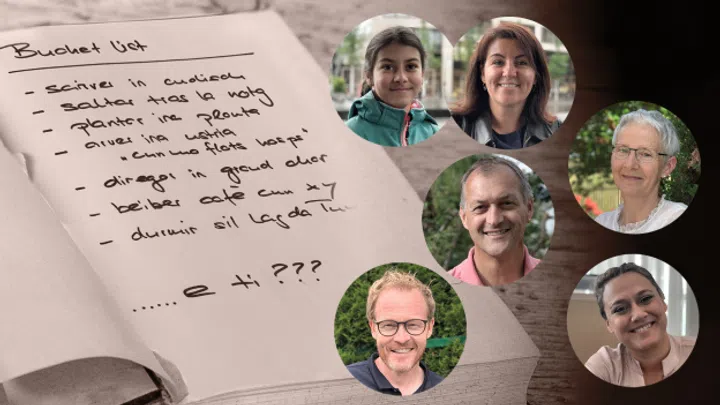 Bucket list
- scriver in cudisch
- saltar tras la notg
- plantar ina planta
- avrir ina ustria
"cun mo flots hosps"
- dirigor in grond chor
- beiber café cun xy
- durmir sil Lag da
...... e ti ???